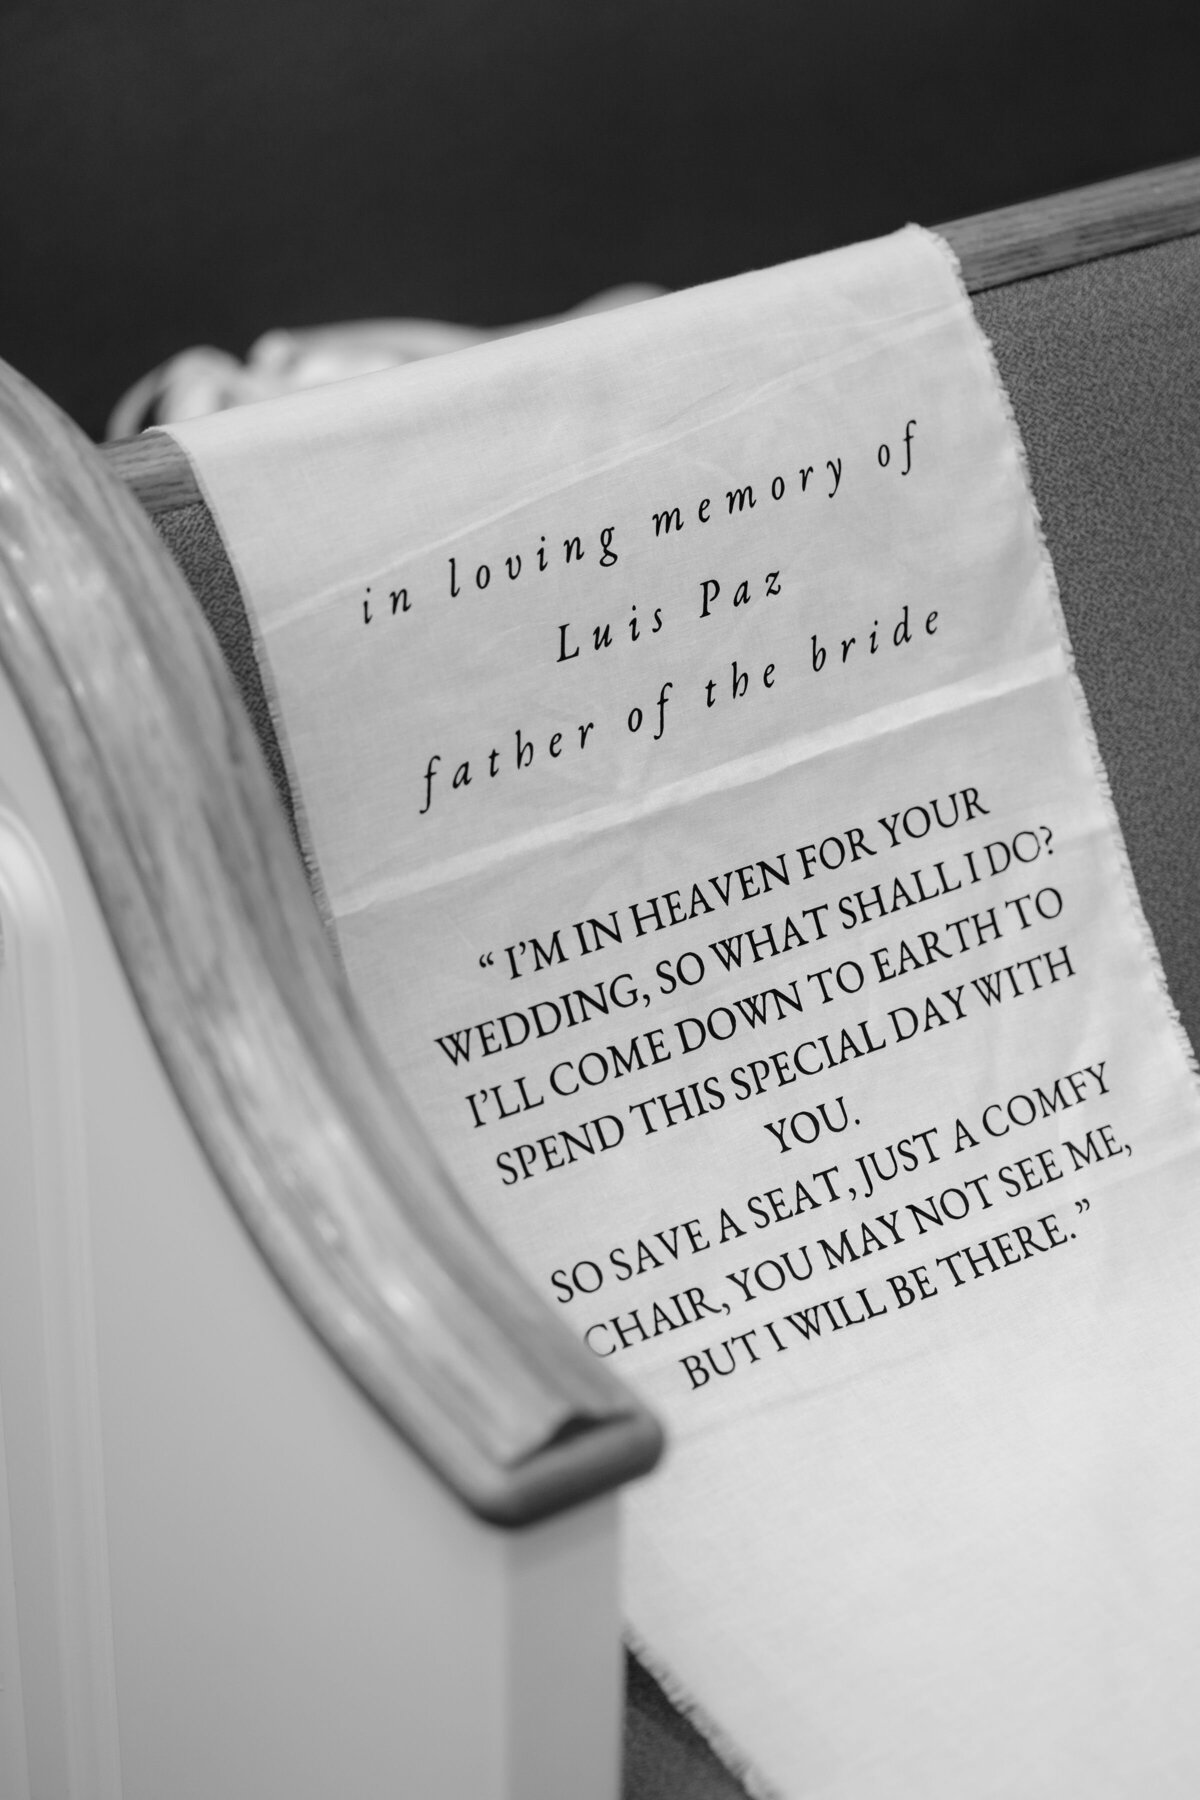 in loving memory of
Luis Paz
father of the bride
“ I’M IN HEAVEN FOR YOUR
WEDDING, SO WHAT SHALL I DO?
I’LL COME DOWN TO EARTH TO
SPEND THIS SPECIAL DAY WITH
YOU.
SO SAVE A SEAT, JUST A COMFY
CHAIR, YOU MAY NOT SEE ME,
BUT I WILL BE THERE.”